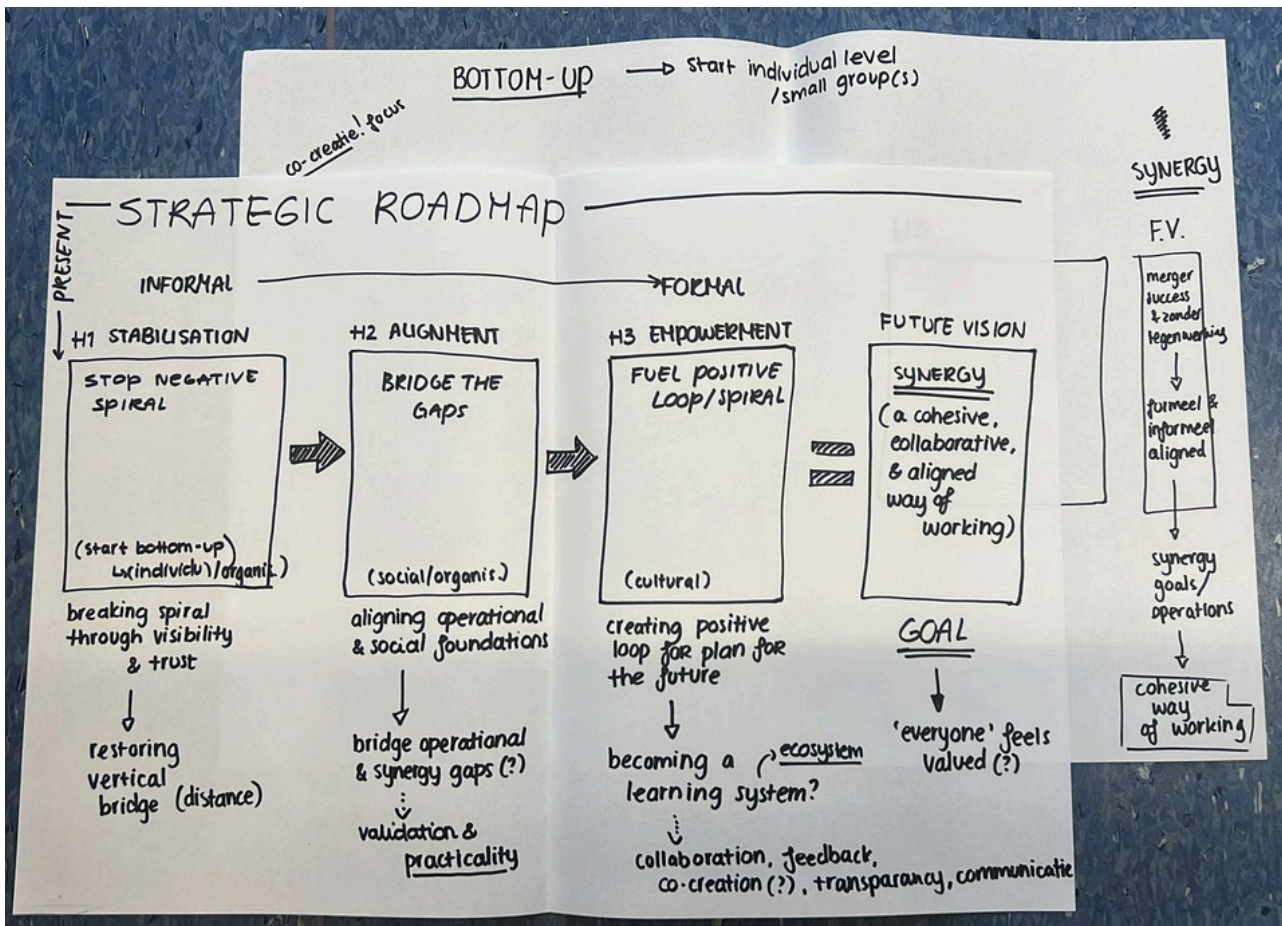 BOTTOM-UP → start individual level
/small group(s)
co-creatie! focus
SYNERGY
F.V.
merger
success
& zonder
tegenwerking
↓
formeel &
informeel
aligned
↓
synergy
goals/
operations
↓
cohesive
way
of working
STRATEGIC ROADMAP
PRESENT
INFORMAL → FORMAL
H1 STABILISATION
STOP NEGATIVE
SPIRAL
(start bottom-up)
↳(individu)/organis.)
breaking spiral
through visibility
& trust
↓
restoring
vertical
bridge (distance)
H2 ALIGNMENT
BRIDGE THE
GAPS
(social/organis.)
aligning operational
& social foundations
↓
bridge operational
& synergy gaps (?)
↓
validation &
practicality
H3 EMPOWERMENT
FUEL POSITIVE
LOOP/SPIRAL
(cultural)
creating positive
loop for plan for
the future
↓
becoming a ecosystem
learning system?
↓
collaboration, feedback,
co-creation (?), transparancy, communicatie
FUTURE VISION
SYNERGY
(a cohesive,
collaborative,
& aligned
way of
working)
GOAL
↓
'everyone' feels
valued (?)